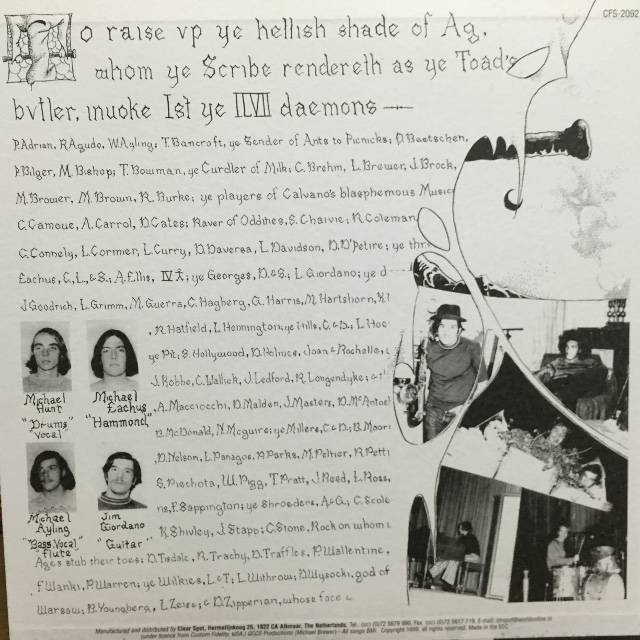 CFS-2092
To raise vp ye hellish shade of Ag,
whom ye Scribe rendereth as ye Toad's
bvtler, invoke Ist ye daemons —
P.Adrian, R.Agudo, W.Ayling; T.Bancroft, ye Sender of Ants to Picnicks; D.Baetschen,
P.Bilger, M.Bishop; T.Bowman, ye Curdler of Milk; C.Brehm, L.Brewer, J.Brock,
M.Brower, M.Brown, R.Burke; ye players of Calvano's blasphemous Music
C.Camoue, A.Carrol, D.Cates; Raver of Oddities, S.Chaivie; R.Coleman
C.Connely, L.Cormier, L.Curry, D.Daversa, L.Davidson, D.D'Petire; ye thr
Eachus, C., L., & S.; A.Ellis, ye Georges, D.&S.; L.Giordano; ye d
J.Goodrich, L.Grimm, M.Guerra, C.Hagberg, G.Harris, M.Hartshorn,
R.Hatfield, L.Hennington; ye Hills, C.&D., L.Hoe
ye Pit, S.Hollywood, D.Holmice, Joan & Rochelle,
J.Kobbe, C.Wallick, J.Ledford, R.Longendyke; &
A.Macciocchi, D.Malden, J.Masters, D.McAntoe
D.McDonald, N.Mcguire; ye Millers, C.&D.; B.Moor
D.Nelson, L.Panagos, A.Parks, M.Peltier, R.Petti
S.Piachota, W.Pigg, T.Pratt, J.Reed, L.Ross,
F.Sappington; ye Shroeders, A.&G.; C.Scole
K.Shivley, J.Stapp; C.Stone, Rock on whom
Ages stub their toes; D.Tisdale, R.Trachy, D.Traffles, P.Wallentine,
F.Wanki, P.Warren; ye Wilkies, L.&T.; L.Withrow; D.Wysocki, god of
Warsaw; B.Youngberg, L.Zeise; & D.Zipperian, whose face
Michael Hunt
"Drums" Vocal
Michael Eachus
"Hammond"
Michael Ayling
"Bass, Vocal" flute
Jim Giordano
"Guitar"
Manufactured and distributed by Clear Spot, Hermelijnkoog 25, 1822 CA Alkmaar, The Netherlands.
(under licence from Custom Fidelity, USA) OCCS Productions (Michael Brewer) - All songs BMI. Copyright 1999, all rights reserved. Made in the EEC